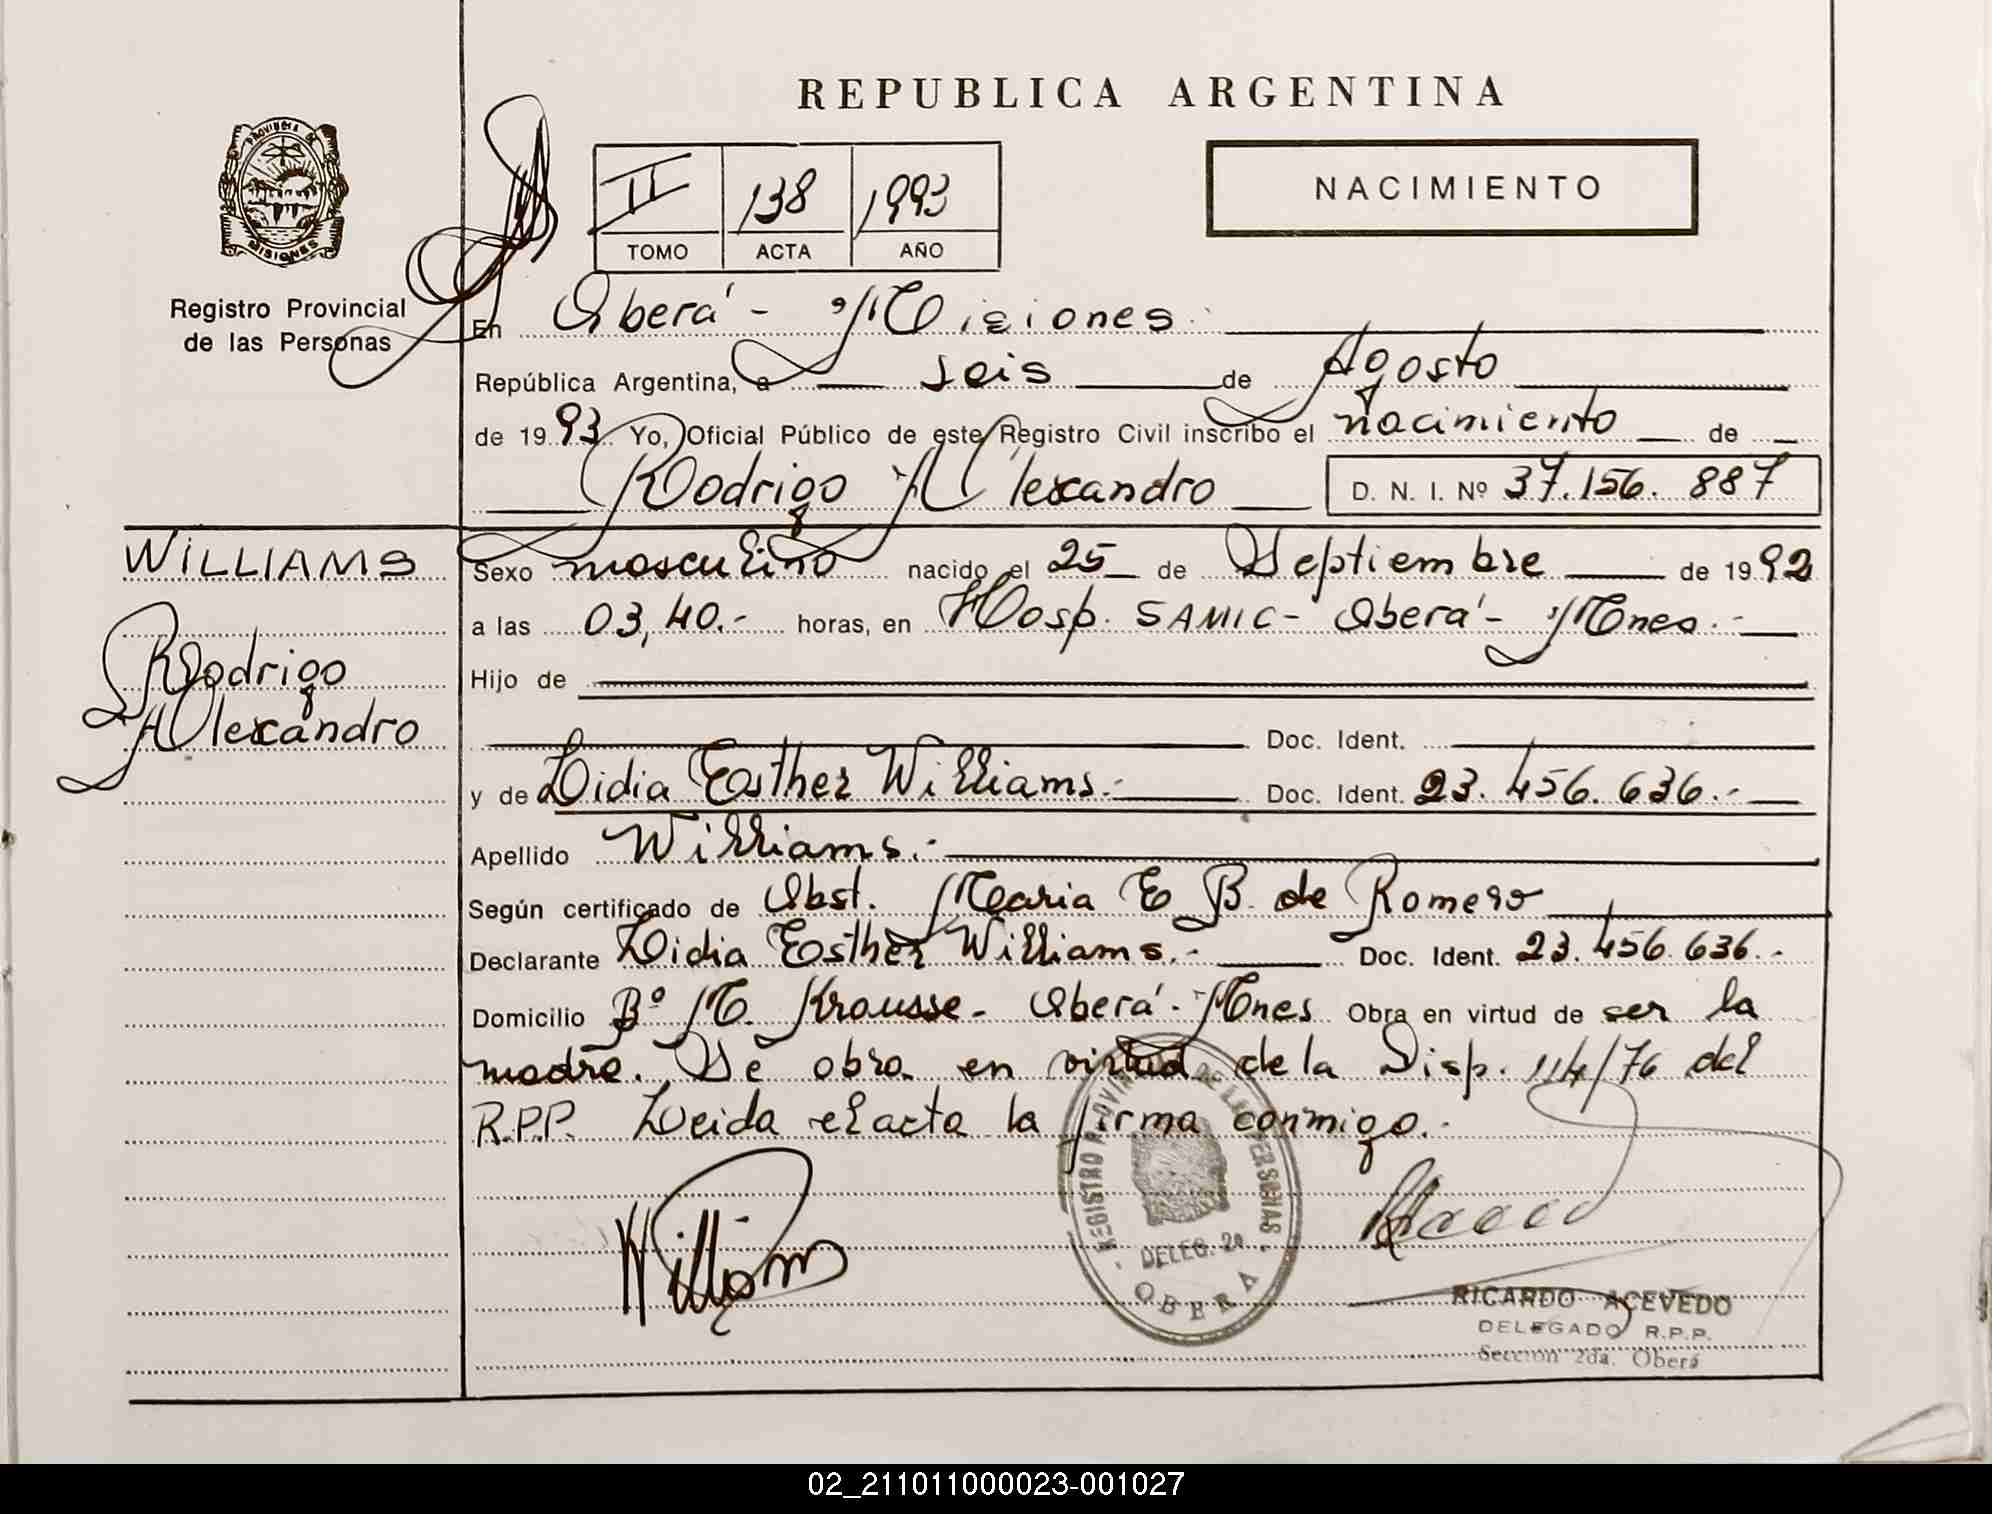 REPUBLICA ARGENTINA
PROVINCIA DE
MISIONES
Registro Provincial
de las Personas
II 138 1993
TOMO ACTA AÑO
NACIMIENTO
En Oberá - Misiones
República Argentina, a seis de Agosto
de 1993 Yo, Oficial Público de este Registro Civil inscribo el nacimiento de
Rodrigo Alexandro D. N. I. Nº 37.156.887
WILLIAMS
Rodrigo
Alexandro
Sexo masculino nacido el 25 de Septiembre de 1992
a las 03,40.- horas, en Hosp. SAMIC - Oberá - Mnes.-
Hijo de
Doc. Ident.
y de Lidia Esther Williams.- Doc. Ident. 23.456.636.-
Apellido Williams.-
Según certificado de Obst. Maria E B. de Romero
Declarante Lidia Esther Williams.- Doc. Ident. 23.456.636.-
Domicilio Bº M. Krausse - Oberá - Mnes Obra en virtud de ser la
madre. Se obra en virtud de la Disp. 114/76 del
R.P.P. Leida el acta la firma conmigo.-
Williams
REGISTRO PROVINCIAL DE LAS PERSONAS
DELEG. 2a
OBERA
RICARDO ACEVEDO
DELEGADO R.P.P.
Sección 2da. Oberá
02_211011000023-001027